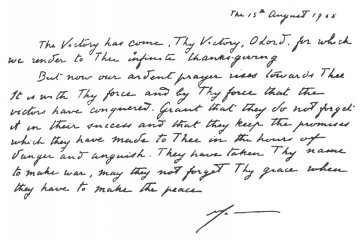 The 15th August 1945
The Victory has come, Thy Victory, O Lord, for which
we render to Thee infinite thanksgiving
But now our ardent prayer rises towards Thee
It is with Thy force and by Thy force that the
victors have conquered. Grant that they do not forget
it in their success and that they keep the promises
which they have made to Thee in the hours of
danger and anguish. They have taken Thy name
to make war, may they not forget Thy grace when
they have to make the peace